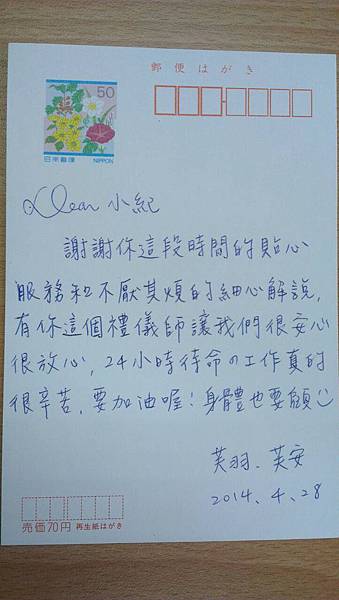 郵便はがき
50
日本郵便 NIPPON
Dear 小紀
謝謝你這段時間的貼心
服務和不厭其煩的細心解說,
有你這個禮儀師讓我們很安心
很放心, 24小時待命の工作真的
很辛苦, 要加油喔! 身體也要顧
芙羽、芙安
2014、4、28
売価70円 再生紙はがき